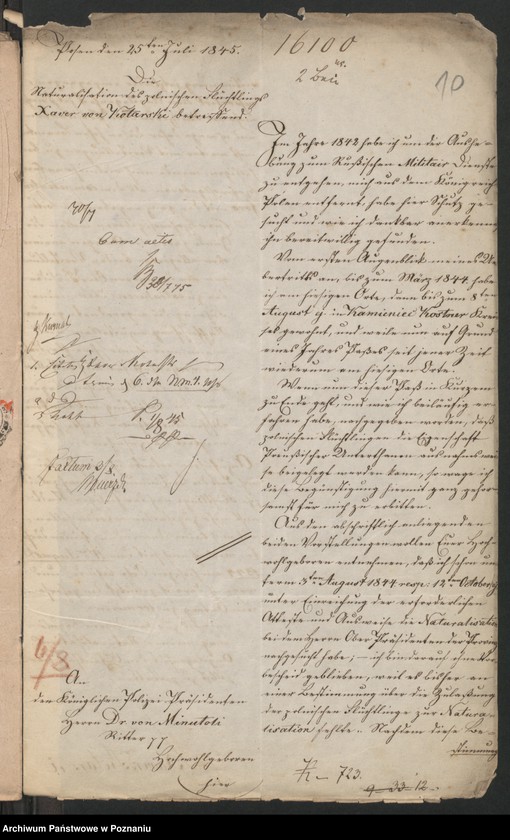 Posen den 25ten Juli 1845.
16100
2 Beil
10
Die
Naturalisation des polnischen Flüchtlings
Xaver von Kotarski betreffend.
Im Jahre 1842 habe ich um der Aushe-
bung zum Rußischen Militair Dienste
zu entgehen, mich aus dem Königreich
Polen entfernt, habe hier Schutz ge-
sucht und wie ich dankbar anerkenne
ihn bereitwillig gefunden.
Vom ersten Augenblick meines Ue-
bertritts an, bis zum März 1844 habe
ich am hiesigen Orte, dann bis zum 8ten
August ej in Kamieniec Kostner Krei-
ses gewohnt, und weile nun auf Grund
eines Jahres Paßes seit jener Zeit
wiederum am hiesigen Orte.
Wenn nun dieser Paß in Kurzem
zu Ende geht, und wie ich beiläufig er-
fahren habe, nachgegeben worden, daß
polnischen Flüchtlingen die Eigenschaft
Preußischer Unterthanen ausnahmswei-
se beigelegt werden kann, so wage ich
diese Begünstigung hiermit ganz gehor-
samst für mich zu erbitten.
Aus den abschriftlich anliegenden
beiden Vorstellungen wollen Euer Hoch-
wohlgeboren entnehmen, daß ich schon un-
term 3ten August 1844 resp: 12ten October ej
unter Einreichung der erforderlichen
Atteste und Ausweise die Naturalisation
bei dem Herrn Ober Präsidenten der Provinz
nachgesucht habe; – ich bin darauf ohne Vor-
bescheid geblieben, weil es bisher an
einer Bestimmung über die Zulaßung
der polnischen Flüchtlinge zur Natura-
lisation fehlte. Nachdem diese Be-
stimmung
30/7
Cum actis
6/8
An
den Königlichen Polizei Präsidenten
Herrn Dr. von Minutoli
Ritter pp
Hochwohlgeboren
hier
723.
Archiwum Państwowe w Poznaniu